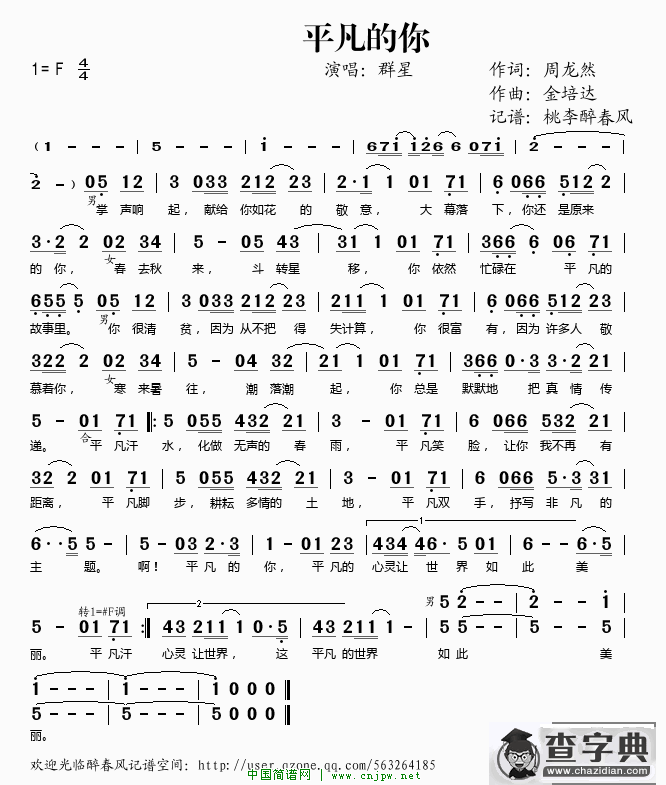 平凡的你
1= F 4/4 演唱：群星 作词：周龙然
作曲：金培达
记谱：桃李醉春风
( 1 - - - | 5 - - - | i - - - | 671 126 6 071 | 2 - - -
2 - ) 05 12 | 3 033 212 23 | 2·1 1 01 71 | 6 066 512 2
男 掌 声响 起，献给 你如花 的 敬 意， 大 幕落 下，你还 是原来
3·2 2 02 34 | 5 - 05 43 | 31 1 01 71 | 366 6 06 71 |
的 你， 女 春 去秋 来， 斗 转星 移， 你 依然 忙碌在 平 凡的
6555 5 05 12 | 3 033 212 23 | 211 1 01 71 | 6 066 512 23 |
故事里。 男 你 很清 贫，因为 从不把 得 失计算， 你 很富 有，因为 许多人 敬
322 2 02 34 | 5 - 04 32 | 21 1 01 71 | 366 0·3 3·2 21 |
慕若你， 女 寒 来暑 往， 潮 落潮 起， 你 总是 默默地 把 真 情 传
5 - 01 71 |: 5 055 432 21 | 3 - 01 71 | 6 066 532 21 |
递。 合 平 凡汗 水，化做 无声的 春 雨， 平 凡笑 脸，让你 我不再 有
32 2 01 71 | 5 055 432 21 | 3 - 01 71 | 6 066 5·3 31 |
距离， 平 凡脚 步，耕耘 多情的 土 地， 平 凡双 手，抒写 非 凡 的
6··5 5 - | 5 - 03 2·3 | 1 - 01 23 | 1 434 46· 5 - | 6 - - 5 |
主 题。 啊！ 平 凡 的 你， 平 凡的 心灵让 世 界 如 此 美
转1=#F调 2 男 5 2 - - | 2 - - 1 |
5 - 01 71 :| 43 211 1 0·5 | 343 211 1 - 5 | 5 - - - | 5 - - 5 |
丽。 平 凡汗 心灵 让世界， 这 平凡 的世界 如此 美
1 - - - | 1 - - - | 1 0 0 0 ||
5 - - - | 5 - - - | 5 0 0 0 ||
丽。
欢迎光临醉春风记谱空间：http://user.qzone.qq.com/563264185
中国简谱网 www.cnjpw.net
查字典
www.chazidian.com